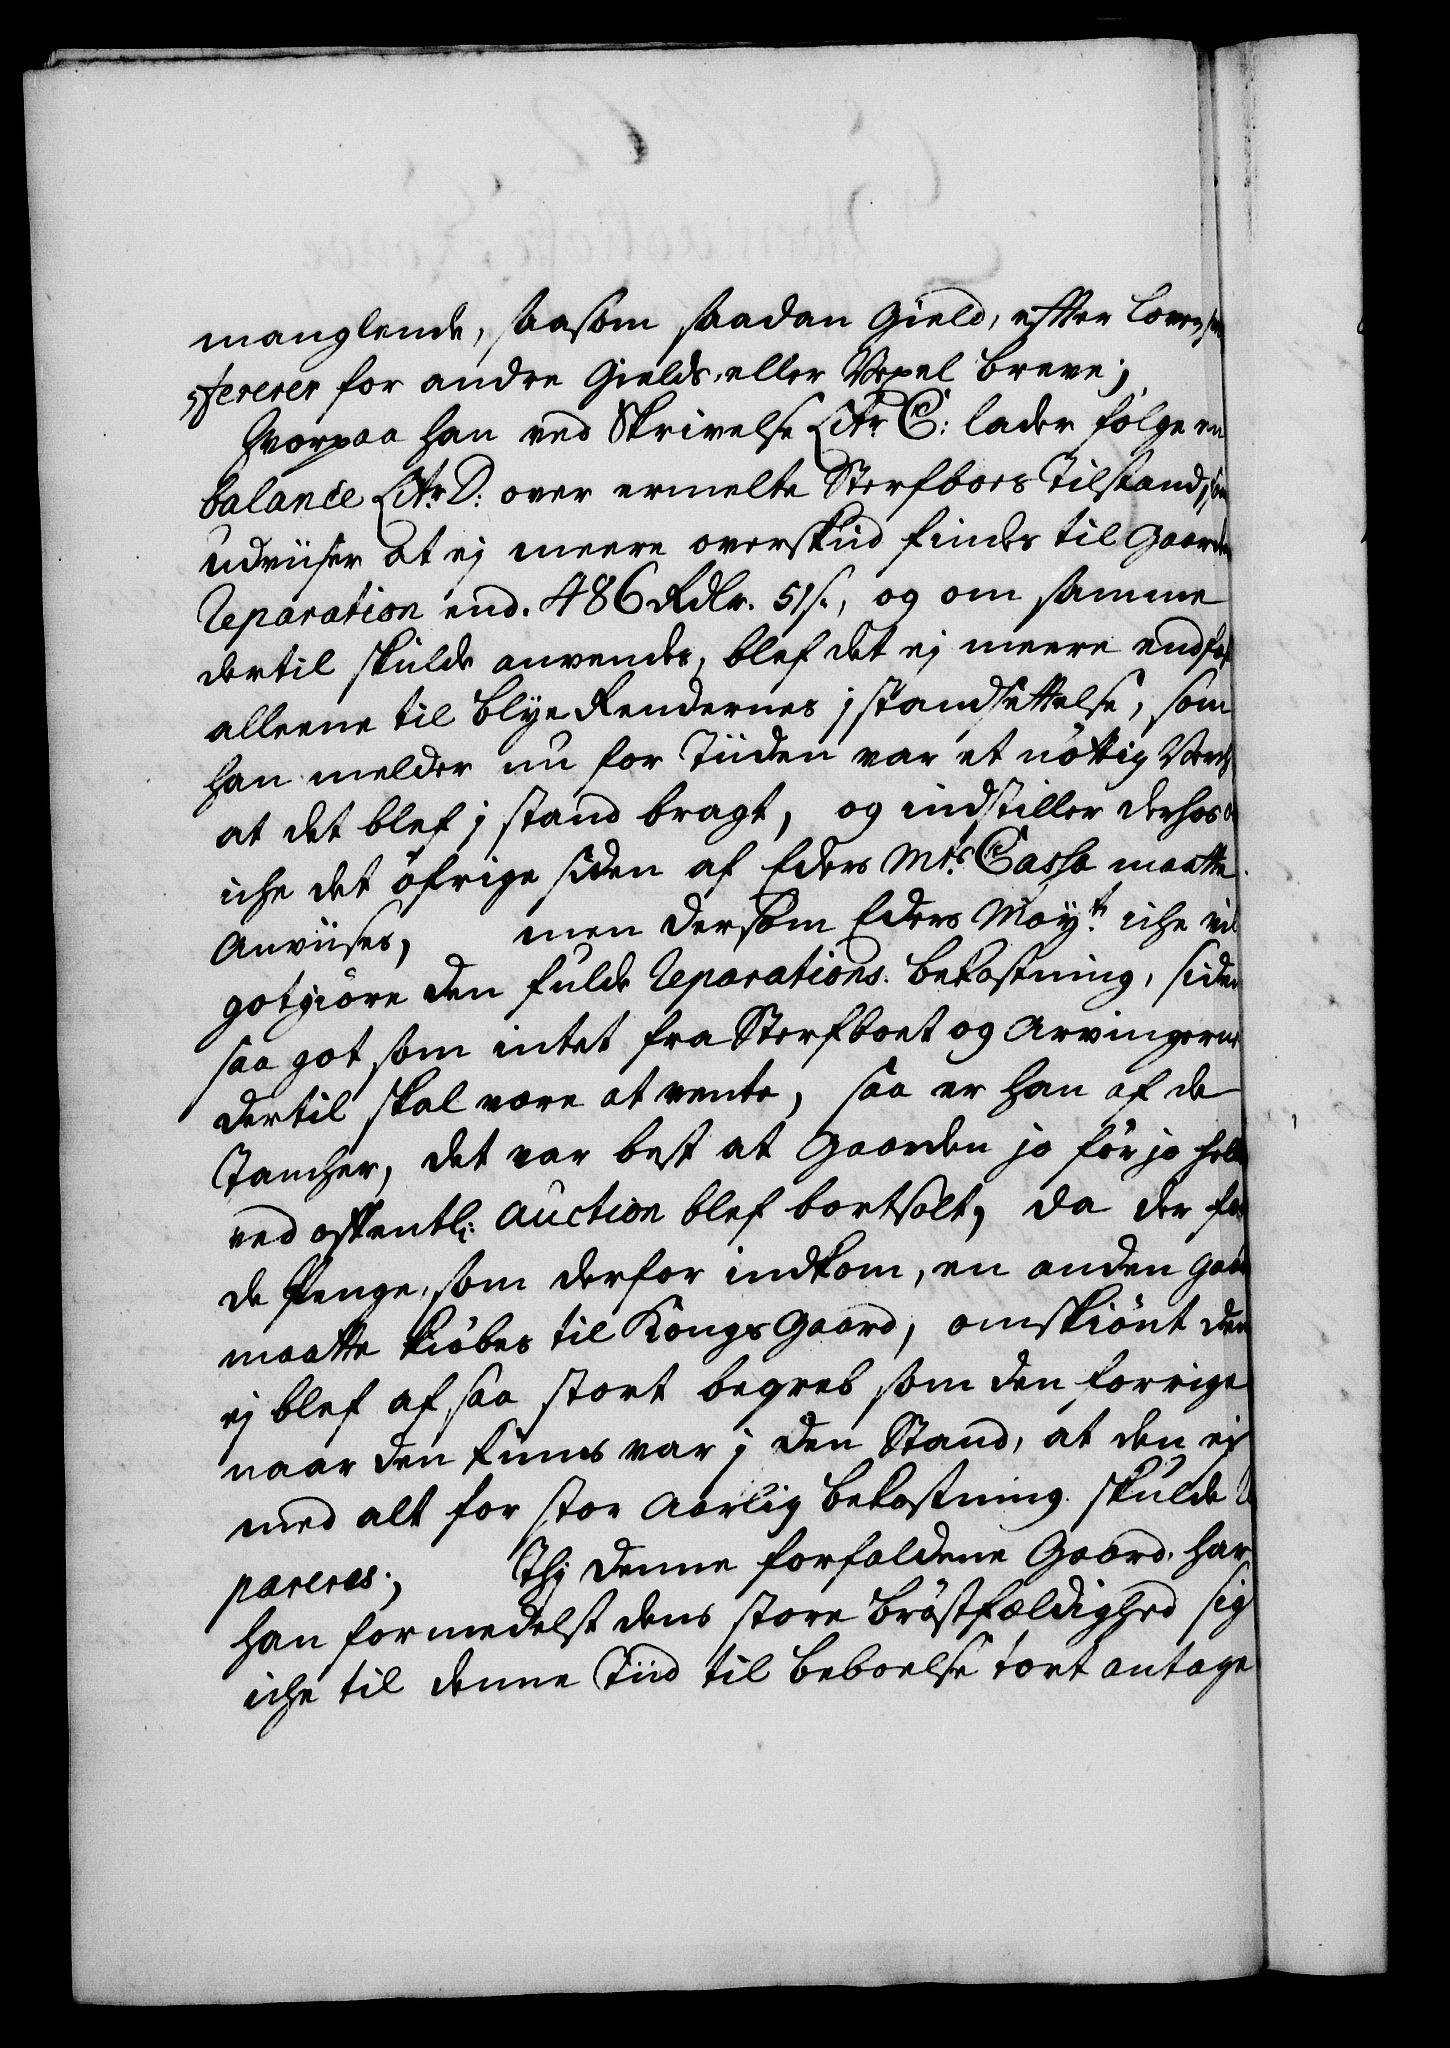 manglende, saasom saadan Gield, efter Loven
fererer for andre Gields, eller Vexel breve;
Hvorpaa han ved Skrivelse Litr. C: lader følge en
balance Litr. D: over ermelte Sterfboes Tilstand, som
udviiser at ej meere overskud findes til Gaarden
Reparation end. 486 Rdlr. 51 s., og om samme
dertil skulde anvendes, blef det ej meere end
alleene til Blye Rendernes j standsettelse, som
han melder nu for Tiiden var et nöttig Verch
at det blef j stand bragt, og indstiller derhos
iche det öfrige siden af Eders Mts. Cassa maatte
Anviises, men dersom Eders Mayt. iche vil
gotgiöre den fulde Reparations. bekostning, siden
saa got som intet fra Sterfboet og Arvingerne
dertil skal være at vente, saa er han af de
Tancher, det var best at Gaarden jo för jo hell
ved offentl: Auction blef bortsolt, da der for
de Penge, som derfor indkom, en anden Gaard
maatte kiöbes til Kongs Gaard, omskiönt den
ej blef af saa stort begreb som den forrige
naar den kuns var j den Stand, at den ej
med alt for stor Aarlig bekostning skulde Re
pareres; Thj denne forfaldene Gaard. har
han formedelst dens store bröstfældighed sig
iche til denne Tiid til beboelse tort antage